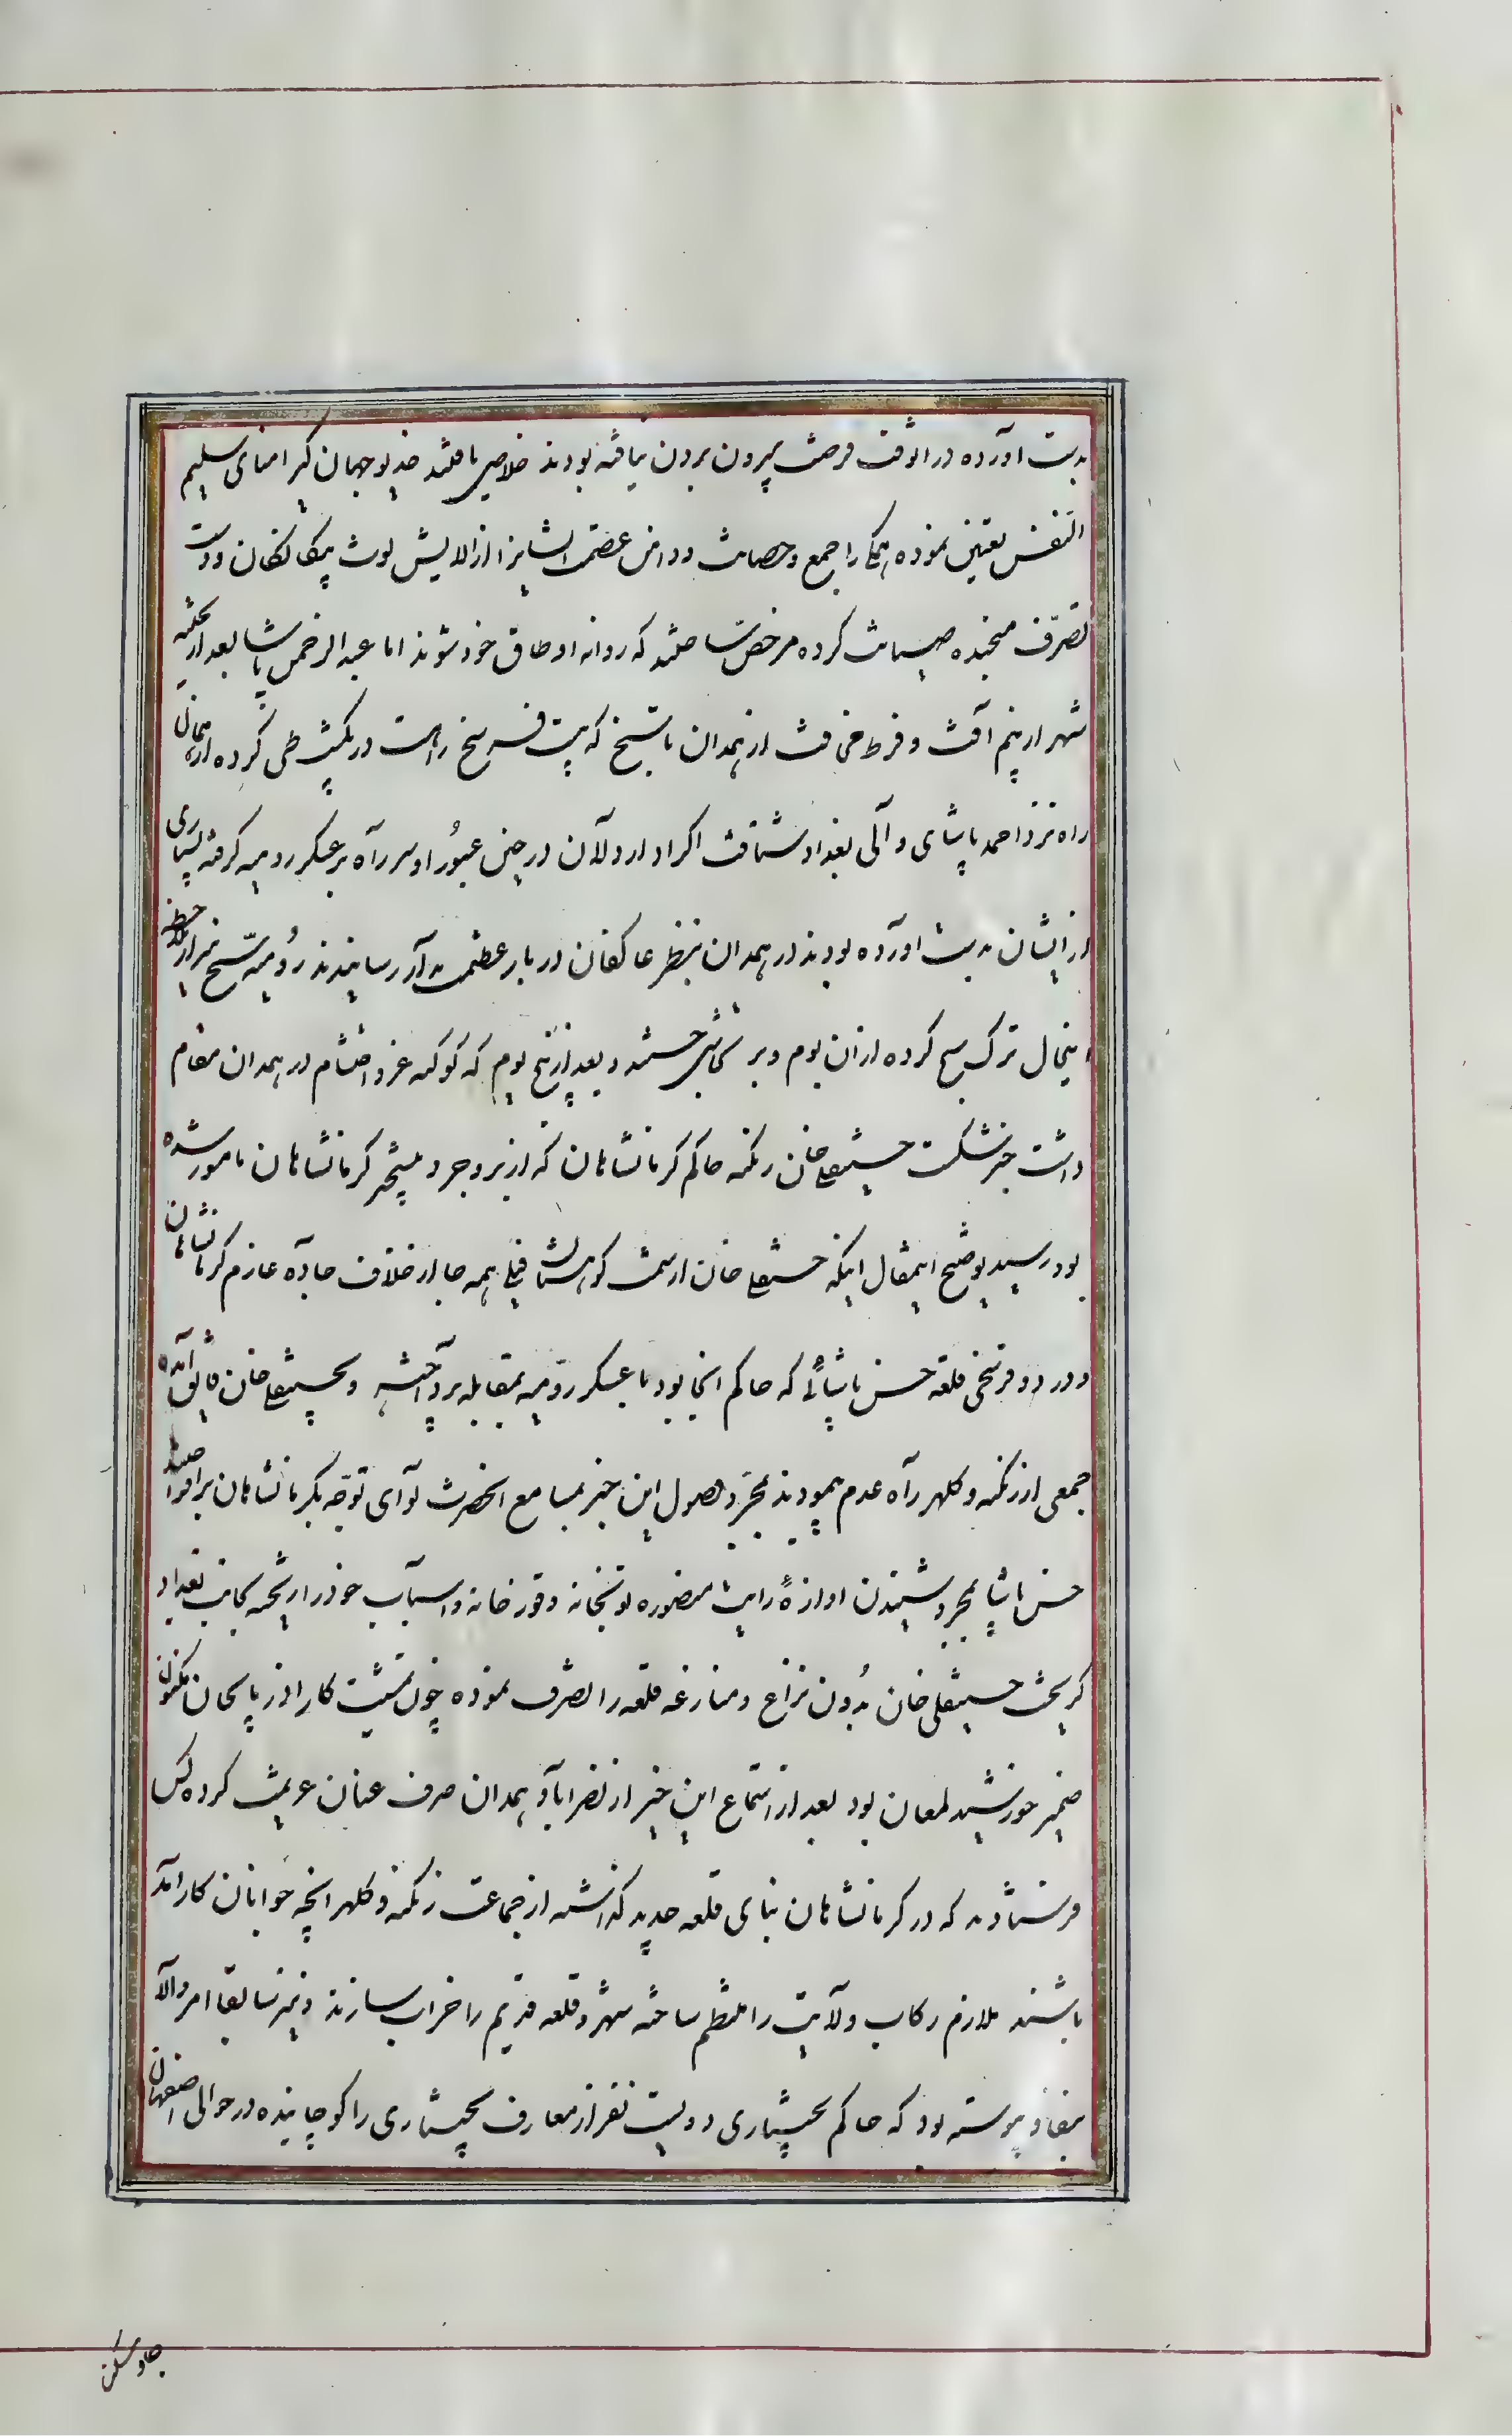 بدست آورده در انوقت فرصت بیرون بردن نیافته بودند خلاصی یافتند خدیو جهان گیر امنای سلیم
النفس تعیین نموده همکی را جمع و حصانت و دامن عصمت ایشانرا از الایش لوث بیکانکان و دست
تصرف صیانت کرده مرخص ساختند که روانه اوطاق خود شوند اما عبدالرحمن پاشا بعد از تخلیه
شهر از بیم آفت و فرط مخافت از همدان تا سنخ که بیست فرسخ راهست در یکشب طی کرده از همان
راه نزد احمد پاشای والی بغداد شتافت اکراد اردلان در حین عبور او سر راه بر عسکر رومیه کرفته بسیاری
از ایشان بدست آورده بودند در همدان بنظر عاکفان دربار عظمت مدار رسانیدند رومیه سنخ نیز از ملاحظه
اینحال ترک سنخ کرده از ان بوم و بر تحاشی جستند و بعد از پنج یوم که کوکبه عز و احتشام در همدان مقام
داشت خبر شکست حسینقلی خان زنکنه حاکم کرمانشاهان که از بروجرد بتسخیر کرمانشاهان مامور شده
بود رسید توضیح اینمقال اینکه حسینقلی خان از سمت کوهستان فیلی همه جا از خلاف جاده عازم کرمانشاهان
و در دو فرسخی قلعه حسن پاشائی که حاکم انجا بود با عسکر رومیه بمقابله پرداخته بر حسینقلی خان فایق آمده
جمعی از زنکنه و کلهر راه عدم پیمودند بمجرد وصول این خبر بمسامع انحضرت لوای توجه بکرمانشاهان برافراختند
حسن پاشا بمجرد شنیدن اوازه رایت منصوره توپخانه و قورخانه و اسباب خود را ریخته بجانب بغداد
کریخت حسینقلی خان بدون نزاع و منازعه قلعه را تصرف نموده چون تمشیت کار اذربایجان مکنون
ضمیر خورشید لمعان بود بعد از استماع این خبر از نصراباد همدان صرف عنان عزیمت کرده کس
فرستادند که در کرمانشاهان بنای قلعه جدید کذاشته از جماعت زنکنه و کلهر انچه جوانان کارامد
باشند ملازم رکاب ولایت را منتظم ساخته شهر و قلعه قدیم را خراب سازند و نیز سابقا امر والا
بنفاذ پیوسته بود که حاکم بختیاری دویست نفر از معارف بختیاری را کوچانیده در حوالی اصفهان